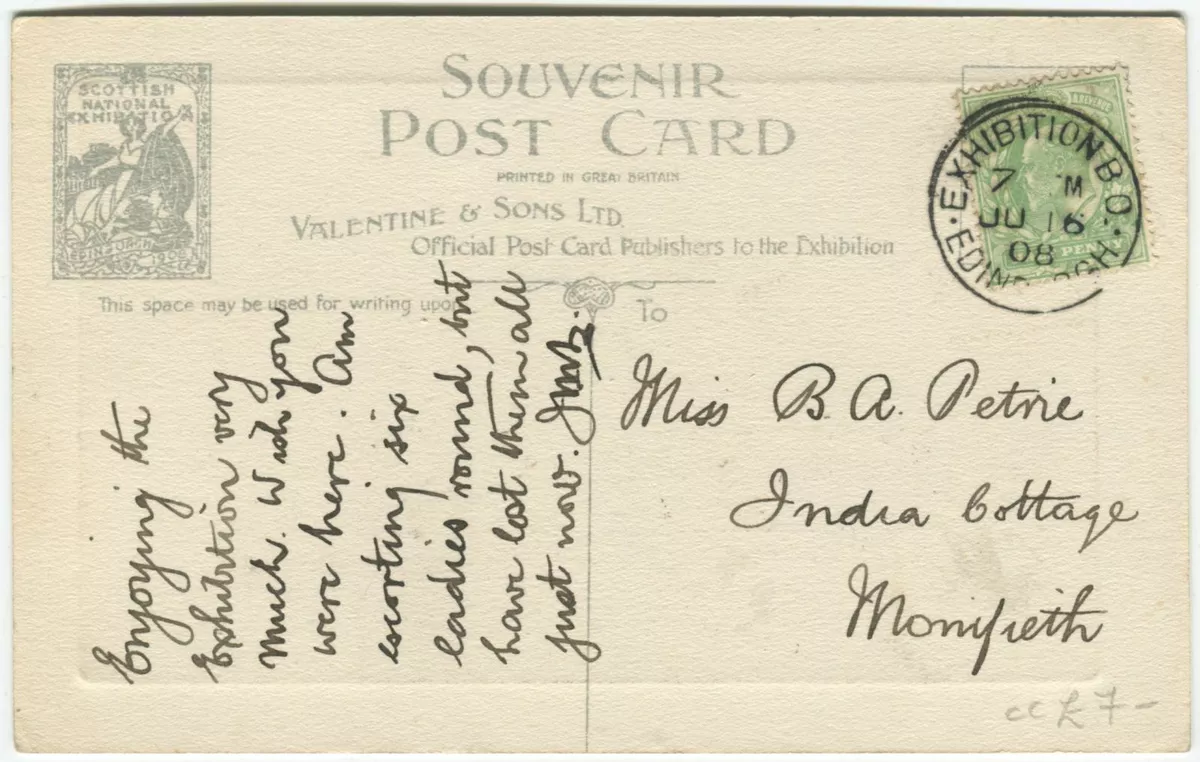 SCOTTISH
NATIONAL
EXHIBITION
EDINBURGH 1908
SOUVENIR
POST CARD
PRINTED IN GREAT BRITAIN
VALENTINE & SONS LTD.
Official Post Card Publishers to the Exhibition
This space may be used for writing upon
To
EXHIBITION B.O.
7 M
JU 16
08
EDINBURGH
PENNY
Enjoying the
Exhibition very
much. Wish you
were here. Am
escorting six
ladies round, but
have lost them all
just now.
Miss B. A. Petrie
India Cottage
Monifieth
£7-